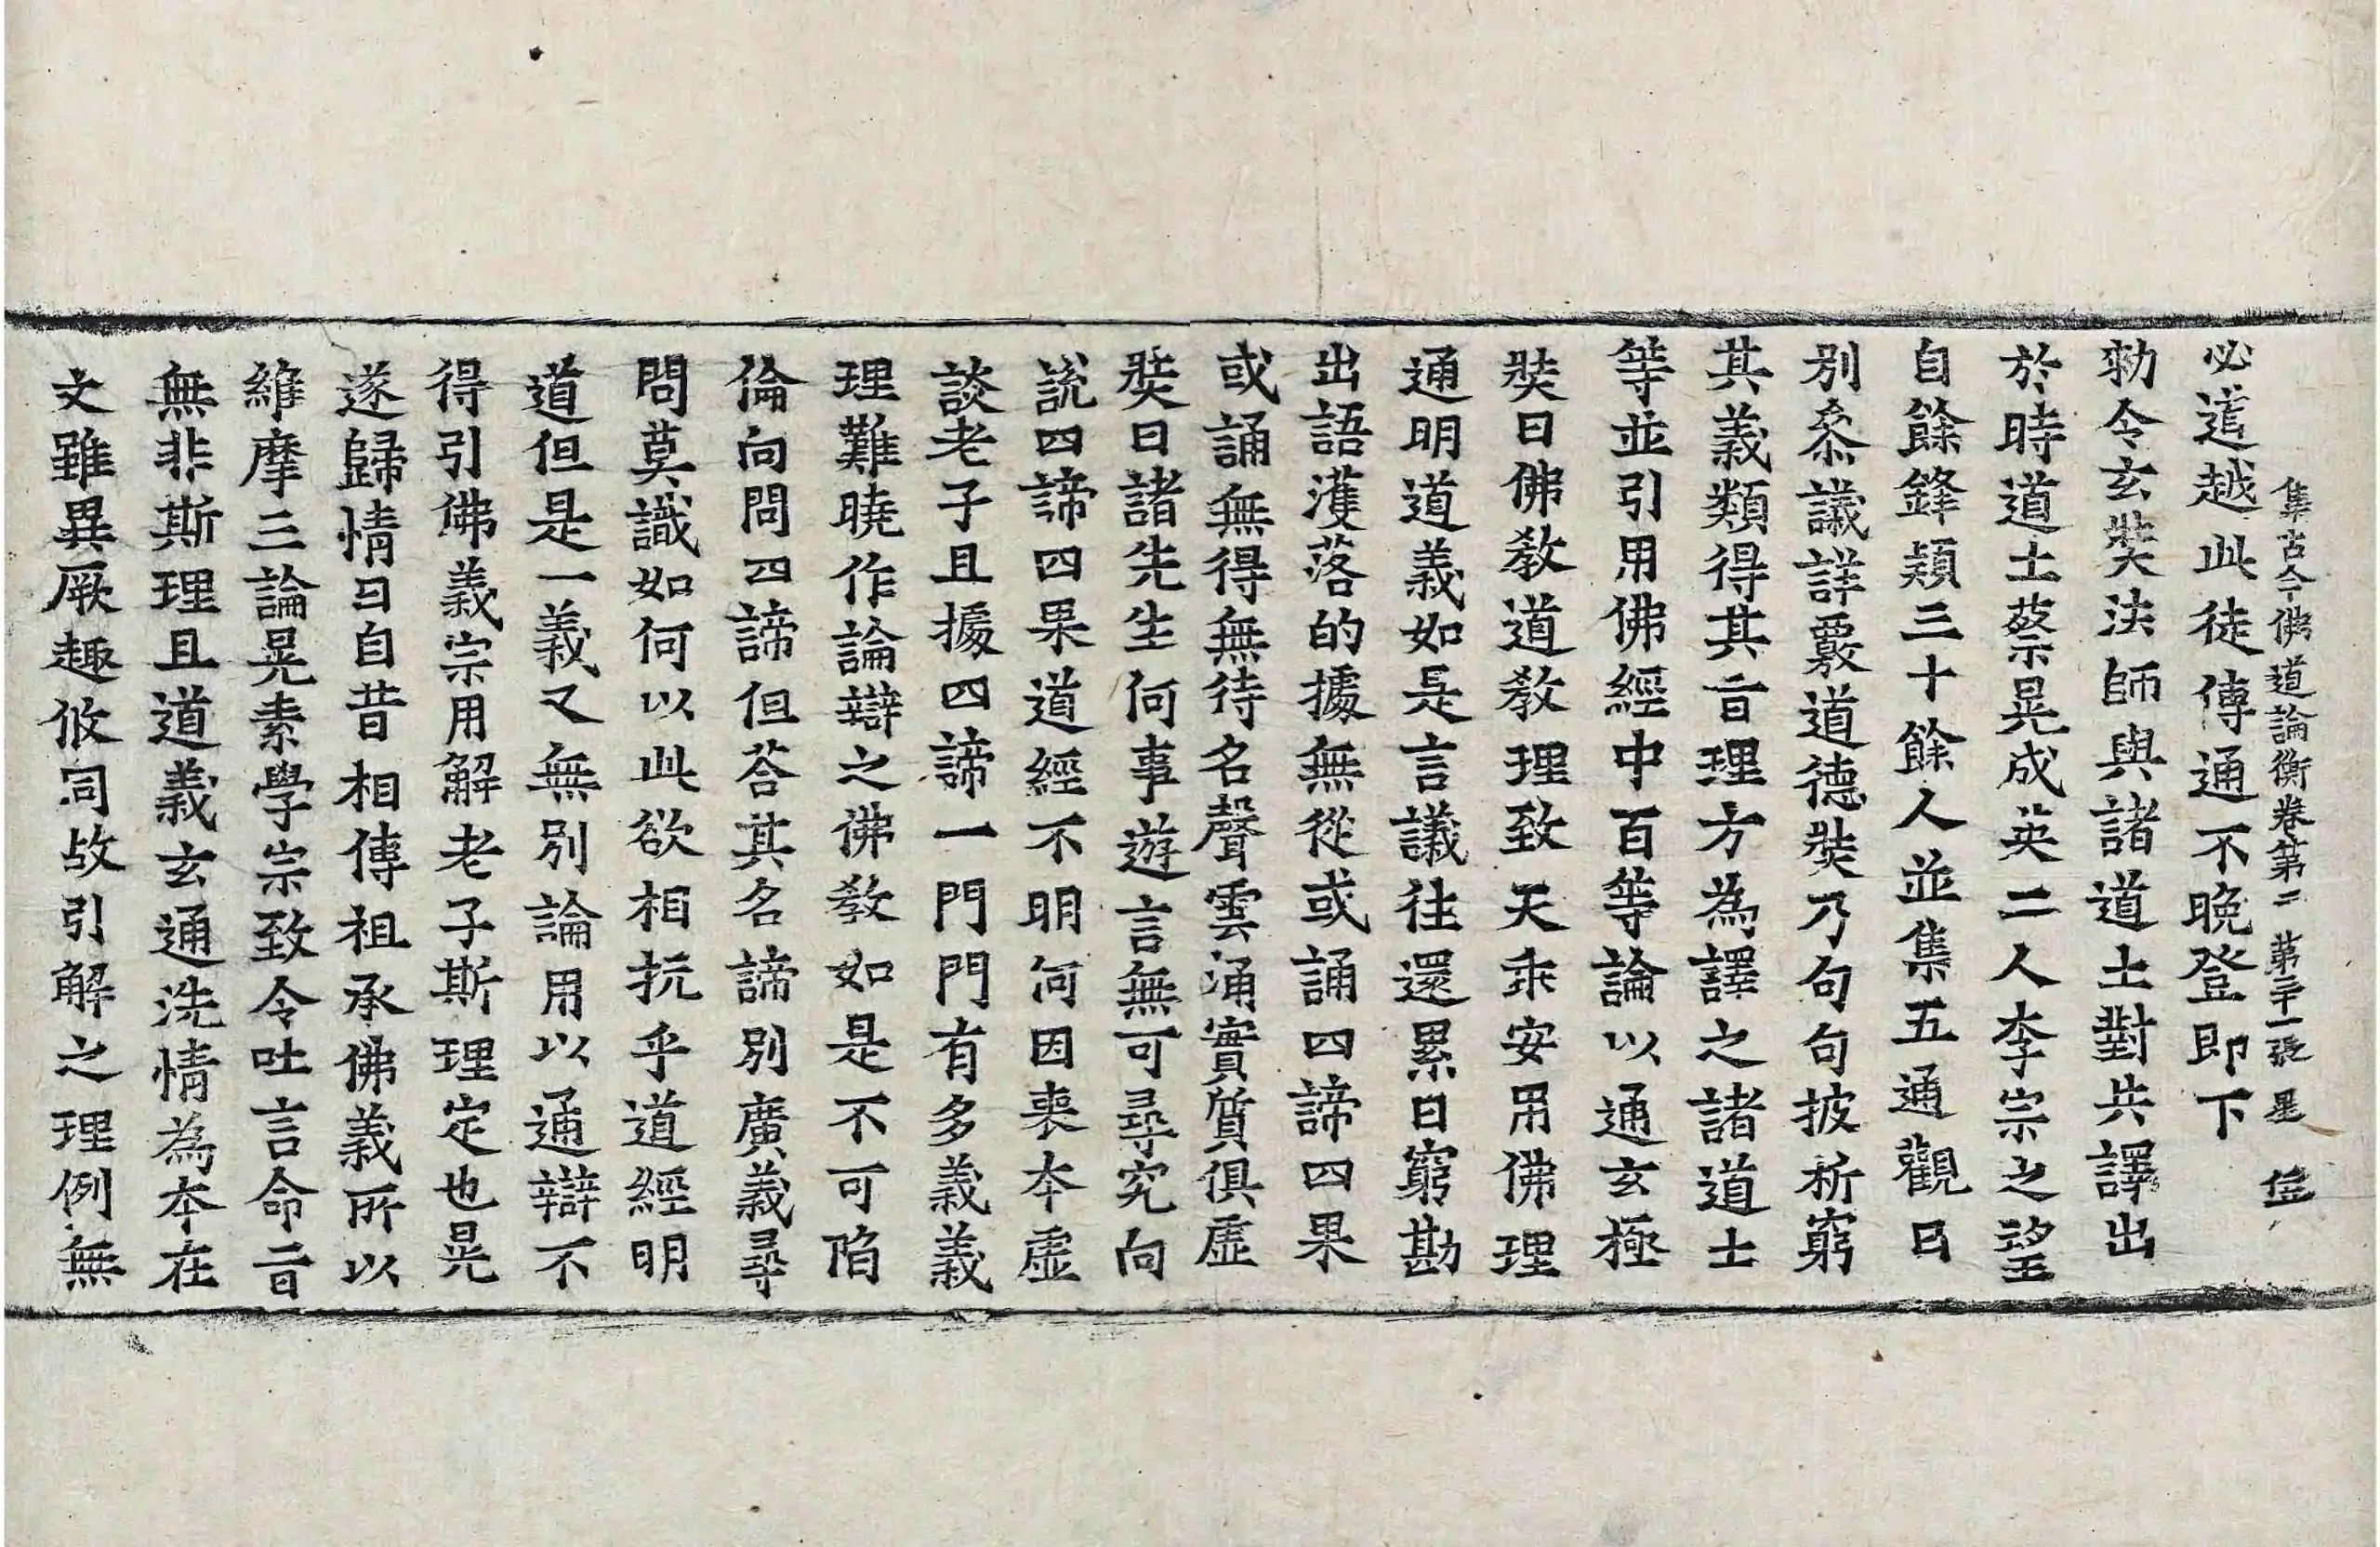 集古今佛道論衡卷第二 第三十一張 星
必道越此徒傳通不晚登即下
勑令玄奘法師與諸道士對共譯出
於時道士蔡晃成英二人李宗之望
自餘鋒穎三十餘人並集五通觀日
別叅議詳覈道德奘乃句句披析窮
其義類得其旨理方為譯之諸道士
等並引用佛經中百等論以通玄極
奘曰佛教道教理致天乖安用佛理
通明道義如是言議往還累日窮勘
出語濩落的據無從或誦四諦四果
或誦無得無待名聲雲涌實質俱虛
奘曰諸先生何事遊言無可尋究向
説四諦四果道經不明何因喪本虛
談老子且據四諦一門門有多義義
理難曉作論辯之佛教如是不可陷
倫向問四諦但荅其名諦別廣義尋
問莫識如何以此欲相抗乎道經明
道但是一義又無別論用以通辯不
得引佛義宗用解老子斯理定也晃
遂歸情曰自昔相傳祖承佛義所以
維摩三論晃素學宗致令吐言命旨
無非斯理且道義玄通洗情為本在
文雖異厥趣攸同故引解之理例無